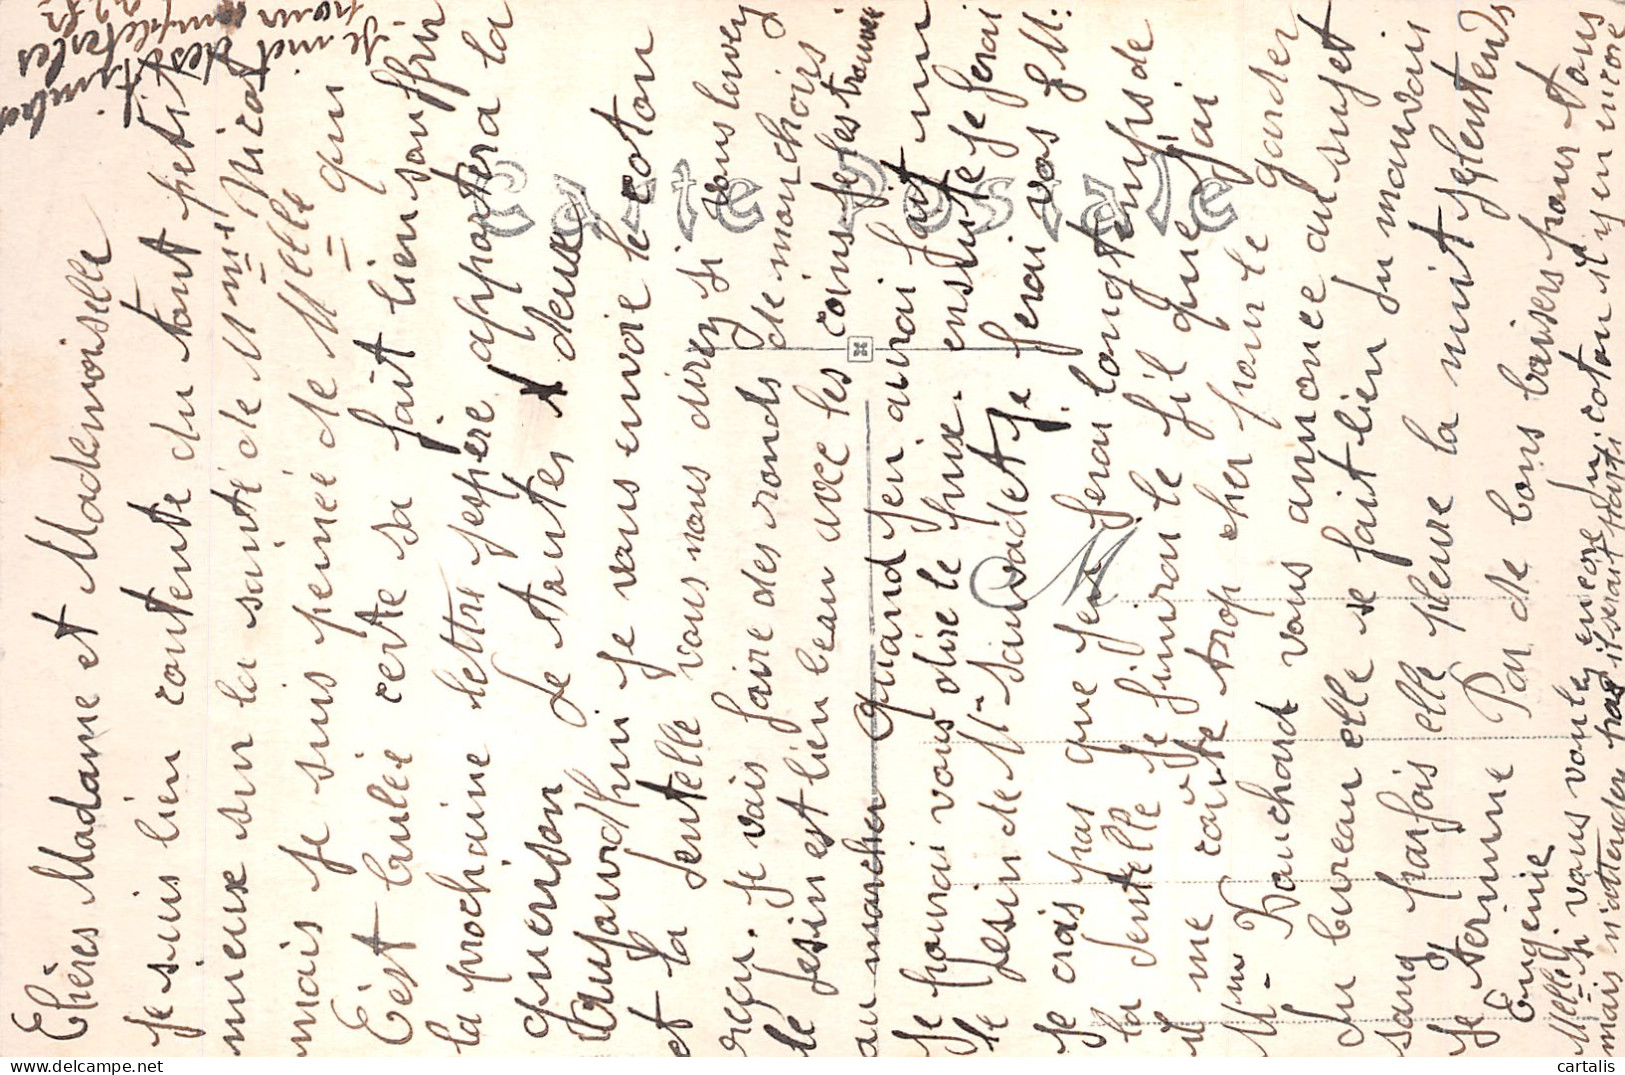 Chères Madame et Mademoiselle
je suis bien contente du tout petit
mieux sur la santé de Mme Nicot
mais je suis peinée de Melle qui
C'est brulée certe sa fait bien souffrir
la prochaine lettre j'espère apportera la
guerison de toutes deux
Aujourd'hui je vous envoie le coton
et la dentelle vous nous direz si vous lavez
reçu. je vais faire des ronds de mouchoirs
le dessin est bien beau avec les coins je les trouve
au marcher quand j'en aurai fait un
je pourai vous dire le prix. ensuite je ferai
le dessin de Mr Sauvadet je ferai vos J.M.
Je crois pas que j'en ferai longtemps de
la dentelle je finirai le fil que j'ai
il me coute trop cher pour le garder
Mme Bauchard vous annonce au sujet
du bureau elle se fait bien du mauvais
sang parfois elle pleure la nuit je l'entends
Je termine Par de bons baisers pour tous
Eugenie
Melle si vous voulez encore du coton il y en encore
mais n'attendez pas il serait parti
Je met des timbres
pour completer les
Carte Postale
M
cartalis